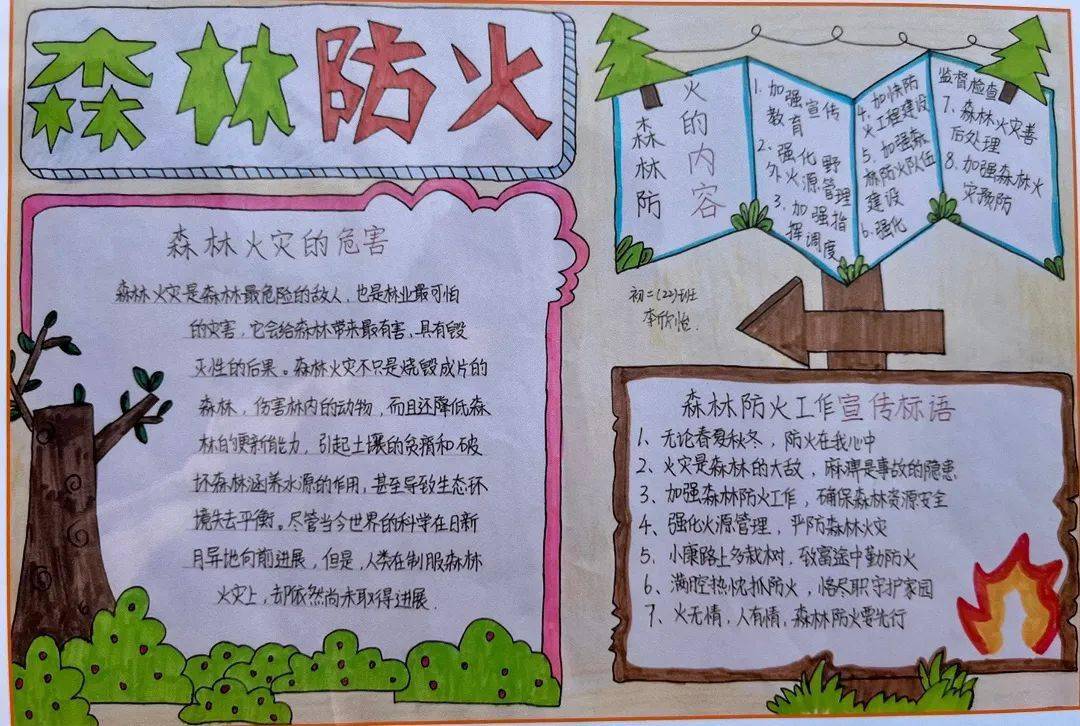 森林防火
森林火灾的危害
森林火灾是森林最危险的敌人，也是林业最可怕
的灾害，它会给森林带来最有害，具有毁
灭性的后果。森林火灾不只是烧毁成片的
森林，伤害林内的动物，而且还降低森
林的更新能力，引起土壤的贫瘠和破
坏森林涵养水源的作用，甚至导致生态环
境失去平衡。尽管当今世界的科学在日新
月异地向前进展，但是，人类在制服森林
火灾上，却依然尚未取得进展.
森林防
火的内容
1. 加强宣传
教育
2. 强化野
外火源管理
3. 加强指
挥调度
4. 加快防
火工程建设
5. 加强森
林防火队伍
建设
6. 强化
监督检查
7. 森林火灾善
后处理
8. 加强森林火
灾预防
初二(22)班
李欣怡.
森林防火工作宣传标语
1、无论春夏秋冬，防火在我心中
2、火灾是森林的大敌，麻痹是事故的隐患
3、加强森林防火工作，确保森林资源安全
4、强化火源管理，严防森林火灾
5、小康路上多栽树，致富途中勤防火
6、满腔热忱抓防火，恪尽职守护家园
7、火无情，人有情，森林防火要先行